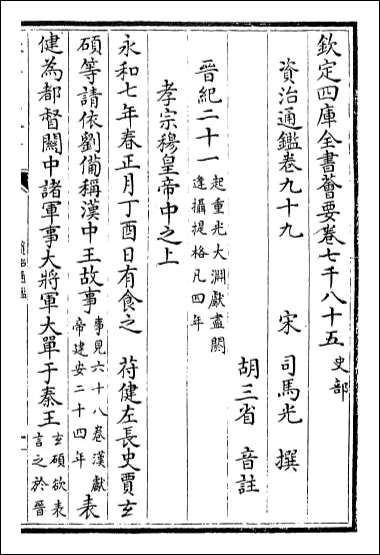 欽定四庫全書薈要卷七千八十五 史部
資治通鑑卷九十九
宋 司馬光 撰
胡三省 音註
晉紀二十一 起重光大淵獻盡閼
逢攝提格凡四年
孝宗穆皇帝中之上
永和七年春正月丁酉日有食之 苻健左長史賈玄
碩等請依劉備稱漢中王故事 事見六十八卷漢獻
帝建安二十四年 表
健為都督關中諸軍事大將軍大單于秦王 玄碩欲表
言之於晉
資治通鑑